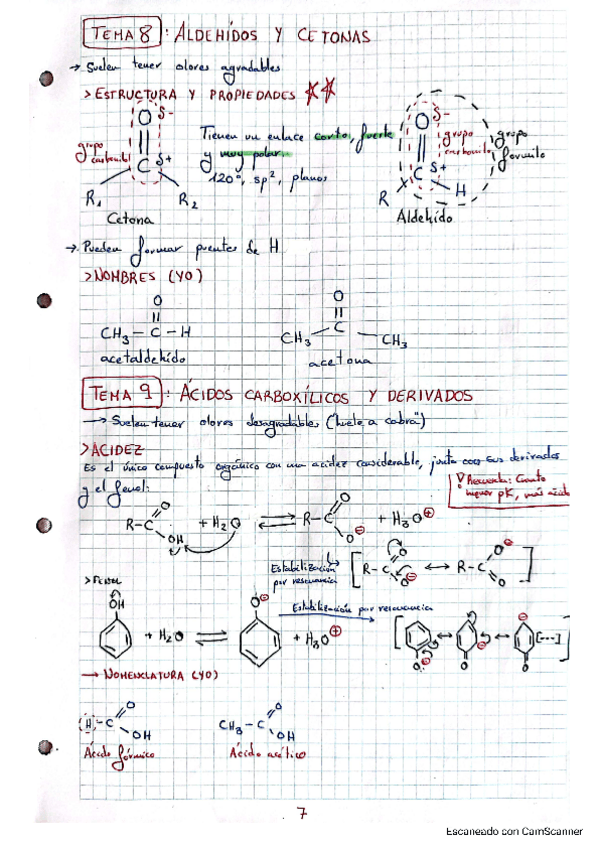 TEMA 8 : ALDEHÍDOS Y CETONAS
→ Suelen tener olores agradables
> ESTRUCTURA Y PROPIEDADES ☆☆
O δ-
grupo carbonilo
C δ+
R1 R2
Cetona
Tienen un enlace corto, fuerte
y muy polar.
120º, sp², planos
O δ-
grupo carbonilo
grupo formilo
C δ+
R H
Aldehído
→ Pueden formar puentes de H
> NOMBRES (YO)
O
||
CH3 – C – H
acetaldehído
O
||
CH3 – C – CH3
acetona
TEMA 9 : ÁCIDOS CARBOXÍLICOS Y DERIVADOS
→ Suelen tener olores desagradables ("huele a cabra")
> ACIDEZ
Es el único compuesto orgánico con una acidez considerable, junto con sus derivados
y el fenol:
Recuerda: Cuanto
menor pK, más ácido
R–C O OH + H2O ⇌ R–C O O⊖ + H3O⊕
Estabilización
por resonancia
[R–C O O⊖ ↔ R–C O⊖ O]
> FENOL
OH + H2O ⇌ O⊖ + H3O⊕
Estabilización por resonancia
[O⊖ ↔ O ↔ O [...]
→ NOMENCLATURA (YO)
H–C O OH
Ácido fórmico
CH3–C O OH
Ácido acético
7
Escaneado con CamScanner